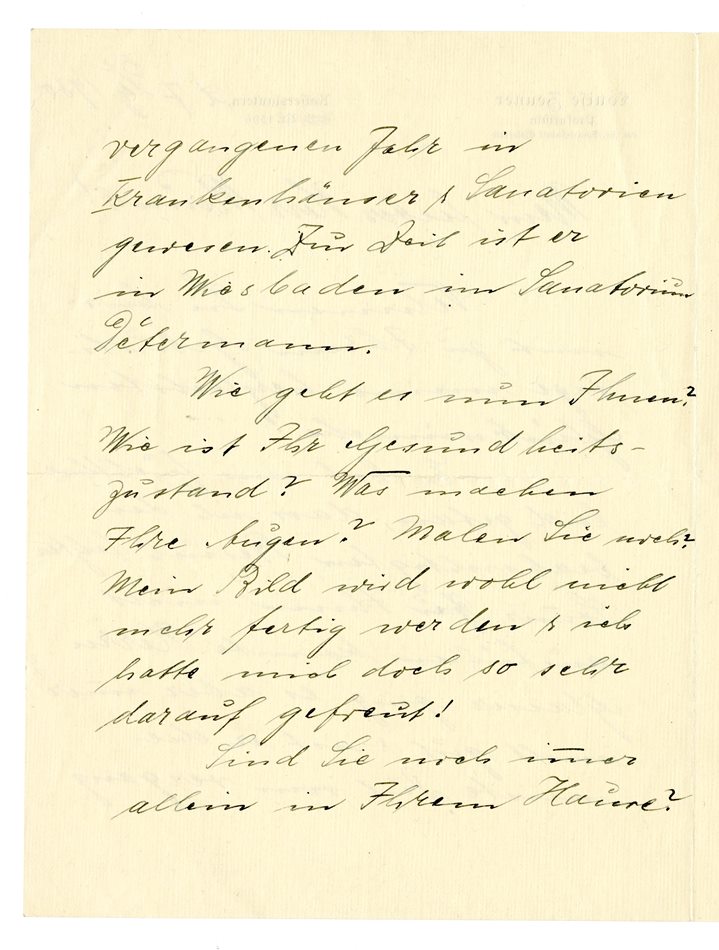 vergangenen Jahr in
Krankenhäuser & Sanatorien
gewesen. Zur Zeit ist er
in Wiesbaden im Sanatorium
Determann.
Wie geht es nun Ihnen?
Wie ist Ihr Gesundheits-
zustand? Was machen
Ihre Augen? Malen Sie noch?
Mein Bild wird wohl nicht
mehr fertig werden & ich
hatte mich doch so sehr
darauf gefreut!
Sind Sie noch im̅er
allein in Ihrem Hause?